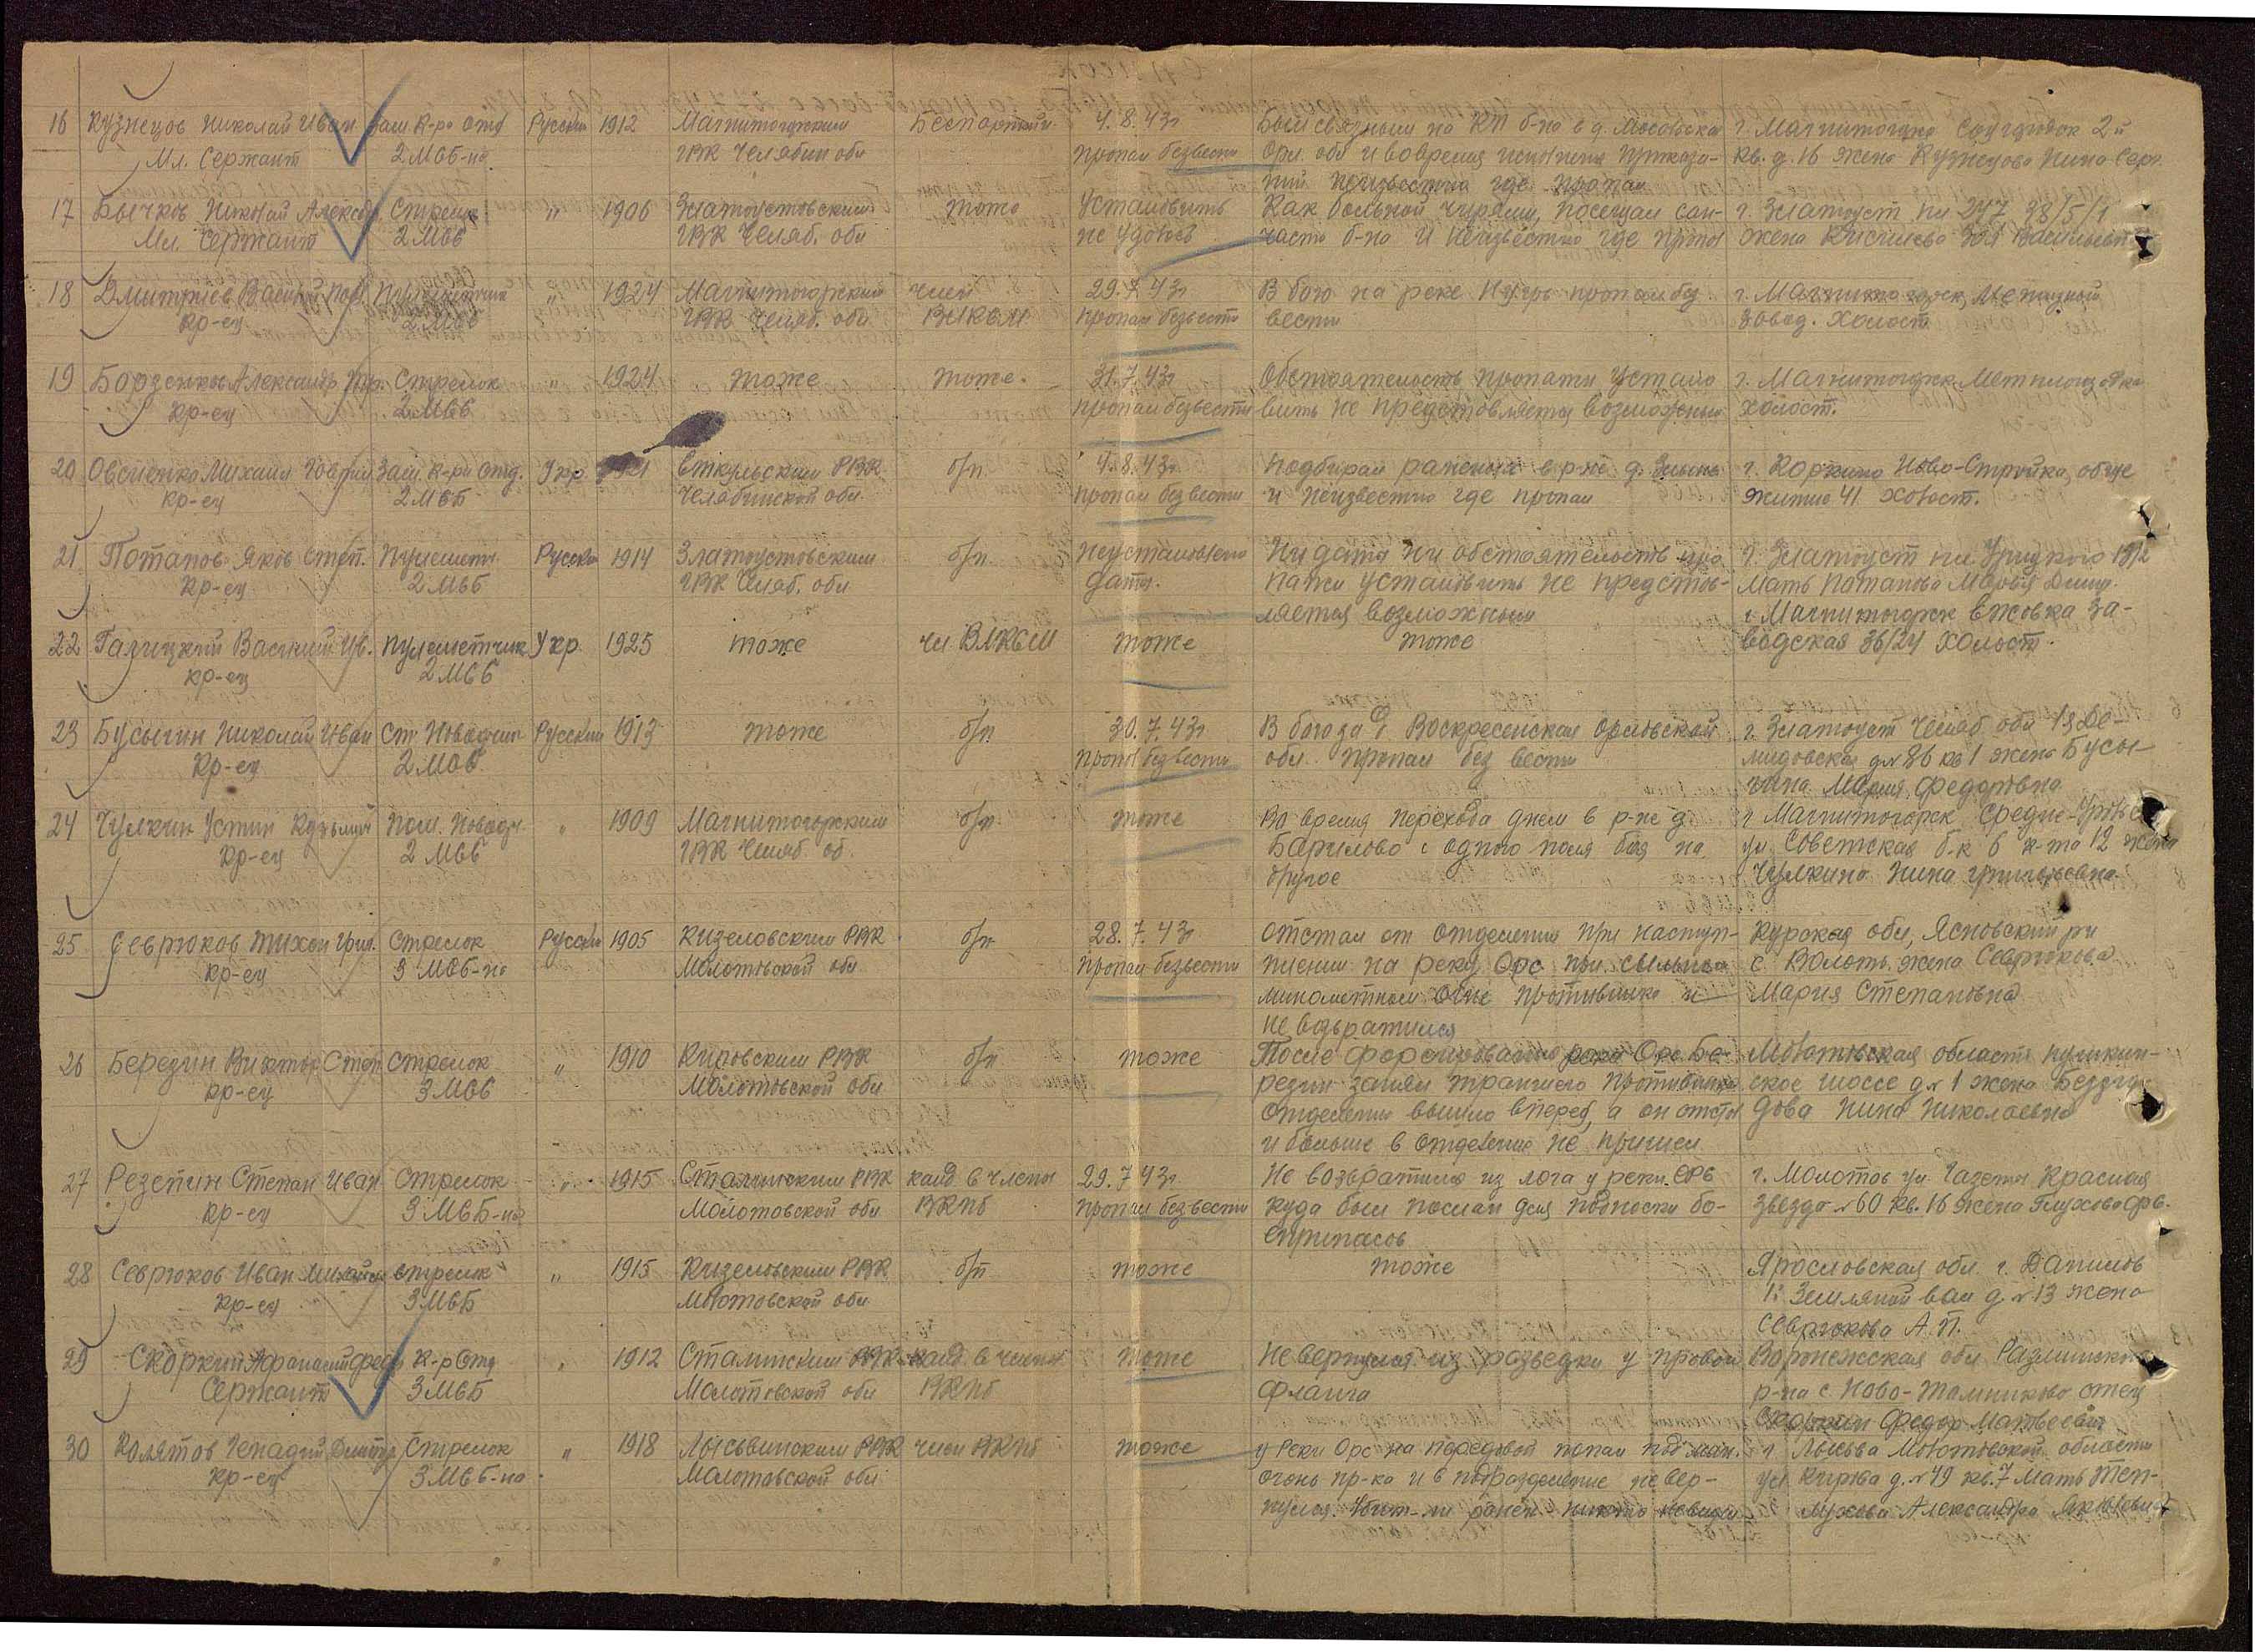 16 Кузнецов Николай Иван. Зам. к-ра отд Русский 1912 Магнитогорским Беспартийн. 4.8.43г Был связным на КП б-на в д. г. Магнитогорск Соцгородок 2й
Мл. Сержант 2 МСБ-на ГВК Челябин обл пропал безвести Орл. обл и вовремя исполнения приказа- кв. д. 16 жена Кузнецова Нина Серг.
ний неизвестно где пропал
17 Бычков Николай Александр. Стрелок " 1906 Златоустовским тоже Установить Как больной чирями, посещал сан- г. Златоуст пл 247 38/5/1
Мл. Сержант 2 МСБ ГВК Челяб. обл не удалось часть б-на и неизвестно где пропал жена Зоя Васильевн
18 Дмитриев Василий Пав. Пулеметчик " 1924 Магнитогорский член 29.7.43г В бою на реке Нугрь пропал без г. Магнитогорск,
кр-ец 2 МСБ ГВК Челяб. обл ВЛКСМ пропал безвести вести завод. Холост
19 Борзенков Александр Стрелок " 1924 тоже тоже. 31.7.43г Обстоятельств пропажи устано г. Магнитогорск
кр-ец 2 МСБ пропал безвести вить не представляется возможным холост.
20 Овсиенко Михаил Гаврил Зам. к-ра отд. Укр. Еткульским РВК б/п 4.8.43г Подбирал раненых в р-не д. и г. Коркино Ново-Стройка, обще
кр-ец 2 МСБ Челябинской обл пропал безвести и неизвестно где пропал житие 41 холост.
21 Потапов Яков Степ. Пулеметч. Русский 1914 Златоустовским б/п. Неустановлена Ни дата ни обстоятельств про г. Златоуст пл. Урицкого 13/2
кр-ец 2 МСБ ГВК Челяб. обл дата. пажи установить не представ- Мать Потапова Мария Дмит.
ляется возможным г. Магнитогорск Ежовка За-
22 Галицкий Василий Ив. Пулеметчик Укр. 1925 тоже чл ВЛКСМ тоже тоже водская 36/24 Холост.
кр-ец 2 МСБ
23 Бусыгин Николай Иван Ст. Наводчик Русский 1913 тоже б/п 30.7.43г В бою за д. Воскресенская Орловской г. Златоуст Челяб обл 1я Де-
кр-ец 2 МСБ пропал безвести обл. пропал без вести мидовская д№ 86 кв 1 жена Бусы
гина Мария Федоровна
24 Чулкин Устин Кузьмич пом. Наводч. " 1909 Магнитогорским б/п. тоже Во время перехода днем в р-не д. г Магнитогорск Средне-Уральс
кр-ец 2 МСБ ГВК Челяб. об. Барилово с одного поля боя на ул. Советская б-к 6 к-та 12 жена
другое Чулкина Нина Григорьевна.
25 Севрюков Тихон Григ. Стрелок Русский 1905 Кизеловским РВК б/п 28.7.43г отстал от отделения при наступ- Курская обл, Ясновский рн
кр-ец 3 МСБ-на Молотовской обл пропал безвести лении на реку Орс при сильном с. Волоть. жена Севрюкова
минометном огне противника и Мария Степановна
не возвратился
26 Березин Виктор Степ Стрелок " 1910 Кировским РВК б/п тоже После форсирования реки Орс Бе- Молотовская область пушкин-
кр-ец 3 МСБ Молотовской обл резин занял траншею противника ское шоссе д№ 1 жена
отделение вышло вперед, а он отстал дова Нина Николаевна
и больше в отделение не пришел
27 Резепин Степан Иван Стрелок " 1915 Сталинским РВК канд. в члены 29.7.43г Не возвратился из лога у реки ОРС г. Молотов ул. Газета Красная
кр-ец 3 МСБ-на Молотовской обл ВКПб пропал безвести куда был послан для подноски бо- звезда №60 кв. 16 жена Глухова
еприпасов
28 Севрюков Иван Михайл стрелок " 1915 Кизеловским РВК б/п тоже тоже Ярославская обл. г. Данилов
кр-ец 3 МСБ Молотовской обл 1: Земляной вал д. №13 жена
Севрюкова А.П.
29 Скоркин Афанасий Федр К-р Отд " 1912 Сталинским РВК канд. в члены тоже Не вернулся из разведки у правого Воронежская обл
Сержант 3 МСБ Молотовской обл ВКПб фланга р-на с. Ново-Томниково отец
Скоркин Федор Матвеевич
30 Колятов Генадий Дмитр. Стрелок " 1918 Лысьвинским РВК член ВКПб тоже у реки Орс на передовой попал под мин. г Лысьва Молотовской области
кр-ец 3 МСБ-на Молотовской обл огонь пр-ка и в подразделение не вер- ул Кирова д. №79 кв. 7 Мать Теп-
нулся. Убит-ли ранен никто невидел лухова Александра Яковлевна